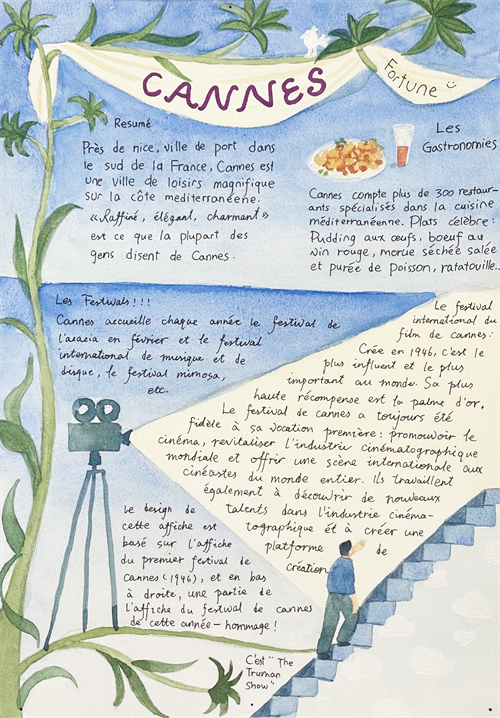 CANNES
Fortune
Resumé
Près de nice, ville de port dans
le sud de la France, Cannes est
une ville de loisirs magnifique
sur la côte mediterranéene.
«Raffiné, élégant, charmant»
est ce que la plupart des
gens disent de Cannes.
Les
Gastronomies
Cannes compte plus de 300 restaur-
ants spécialisés dans la cuisine
méditerranéenne. Plats célèbre:
Pudding aux œufs, boeuf au
vin rouge, morue séchée salée
et purée de Poisson, ratatouille...
Les Festivals!!!
Cannes accueille chaque année le festival de
l'acacia en février et le festival
international de musique et de
disque, le festival mimosa,
etc.
Le festival
international du
film de cannes:
Crée en 1946, c'est le
plus influent et le plus
important au monde. Sa plus
haute récompense est la palme d'or.
Le festival de cannes a toujours été
fidèle à sa vocation première: promouvoir le
cinéma, revitaliser l'industrie cinématographique
mondiale et offrir une scène internationale aux
cinéastes du monde entier. Ils travaillent
également à découvrir de nouveaux
talents dans l'industrie cinéma-
tographique ét à créer une
platforme de
création.
Le design de
cette affiche est
basé sur l'affiche
du premier festival de
Cannes (1946), et en bas
à droite, une partie de
l'affiche du festival de cannes
de cette année - hommage!
C'est "The
Truman
Show"